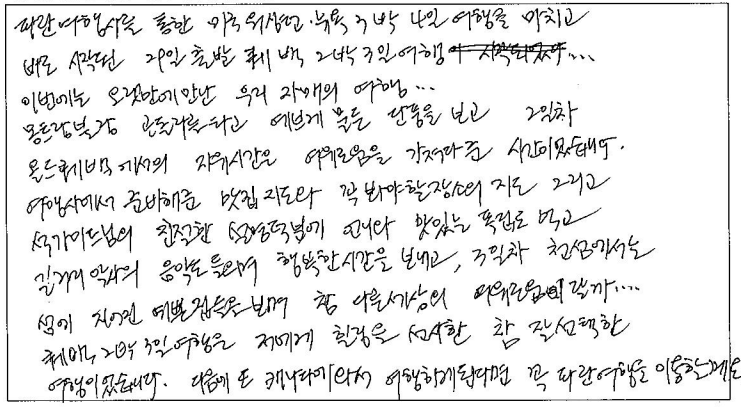 파란여행사를 통한 미국 워싱턴·뉴욕 3박 4일 여행을 마치고
바로 시작된 29일 출발 퀘백 2박3일 여행
이번에는 오랫만에 만난 우리 자매의 여행...
몽트랑블랑 곤돌라를 타고 예쁘게 물든 단풍을 보고 2일차
올드퀘백에서의 자유시간은 여유로움을 가져다준 시간이었습니다.
여행사에서 준비해준 맛집지도와 꼭 봐야할 장소의 지도 그리고
석가이드님의 친절한 설명덕분에 언니와 맛있는 폭립도 먹고
길거리 악사의 음악도 들으며 행복한 시간을 보내고, 3일차 천섬에서는
섬에 지어진 예쁜집들을 보며 참 다른세상의 여유로움이랄까....
퀘백 2박 3일 여행은 저에게 힐링을 선사한 참 잘 선택한
여행이었습니다. 다음에 또 캐나다에 와서 여행하게된다면 꼭 파란여행을 이용할게요